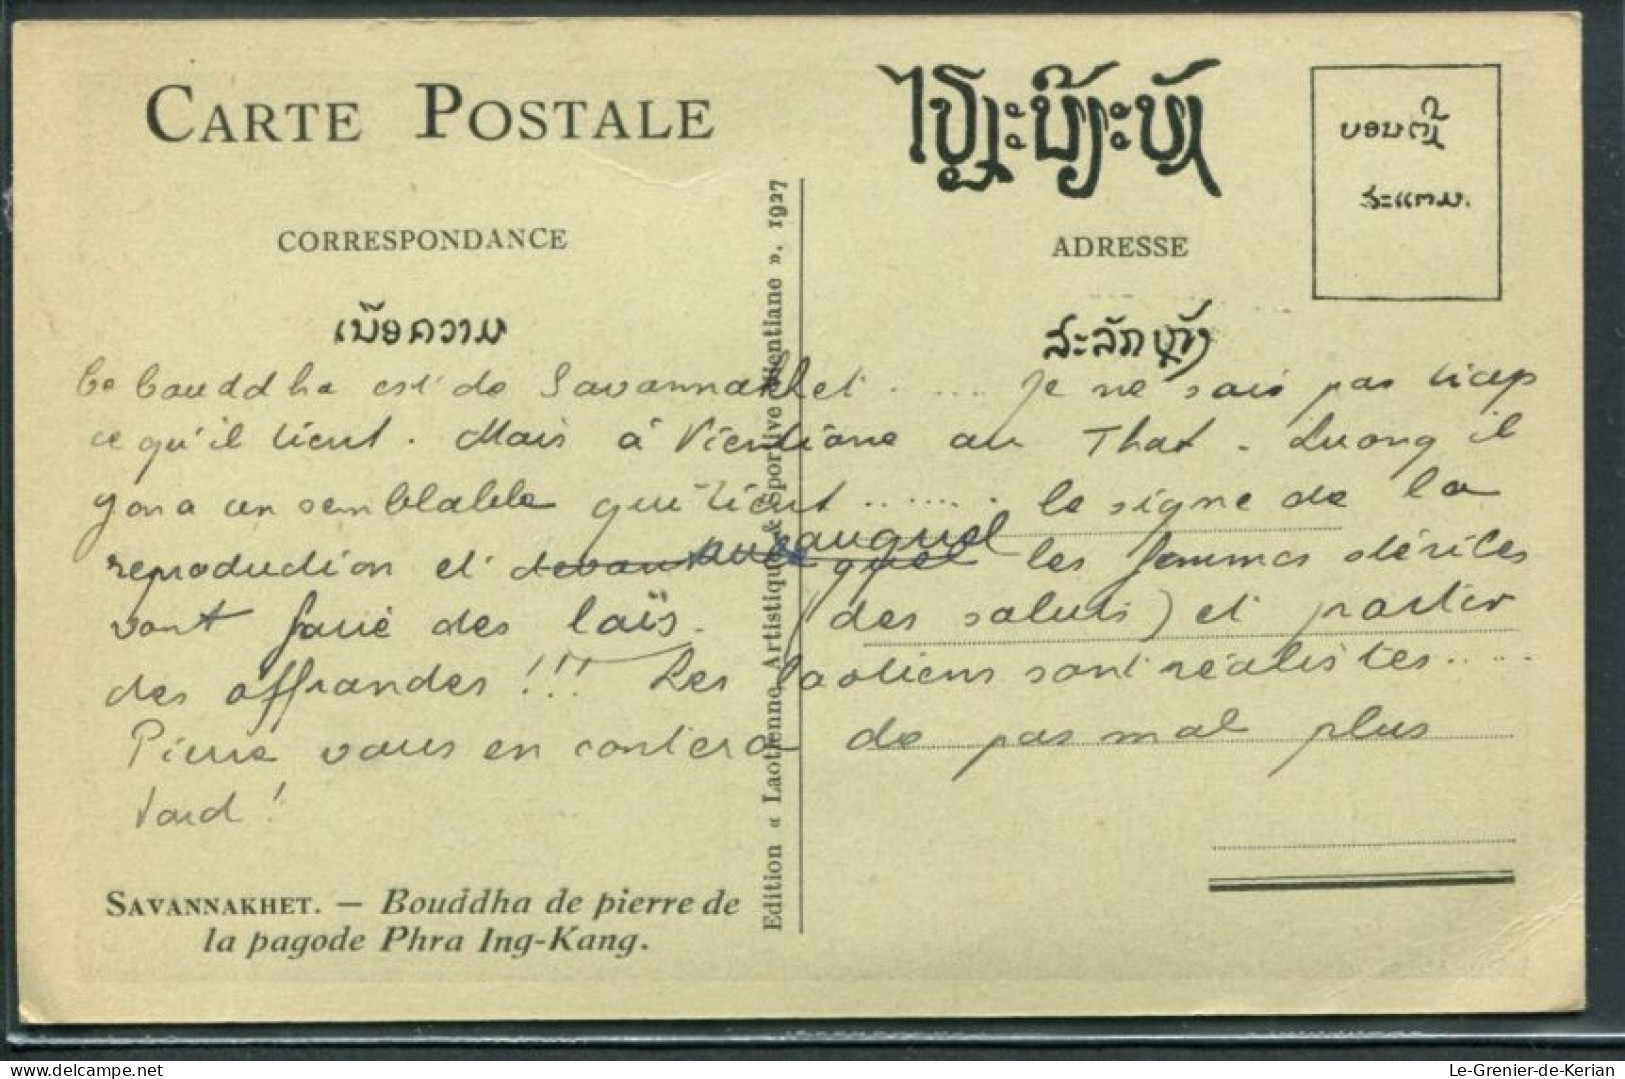 CARTE POSTALE
ໄປສະນີຍະບັຕ
ບອນຕິ
ສະແຕມ.
CORRESPONDANCE
ADRESSE
ເນື້ອຄວາມ
ສະລັກຫຼັງ
Ce bouddha est de Savannakhet. .... Je ne sais pas
ce qu'il tient. Mais à Vientiane au That-Luong il
y en a un semblable qui tient ........ le signe de la
reproduction et auquel les femmes stériles
vont faire des laïs. (des saluts) et porter
des offrandes !!! Les laotiens sont réalistes.....
Pierre vous en contera de pas mal plus
tard !
SAVANNAKHET. — Bouddha de pierre de
la pagode Phra Ing-Kang.
Edition « Laotienne Artistique & Sportive Vientiane ». 1927
Le-Grenier-de-Kerian